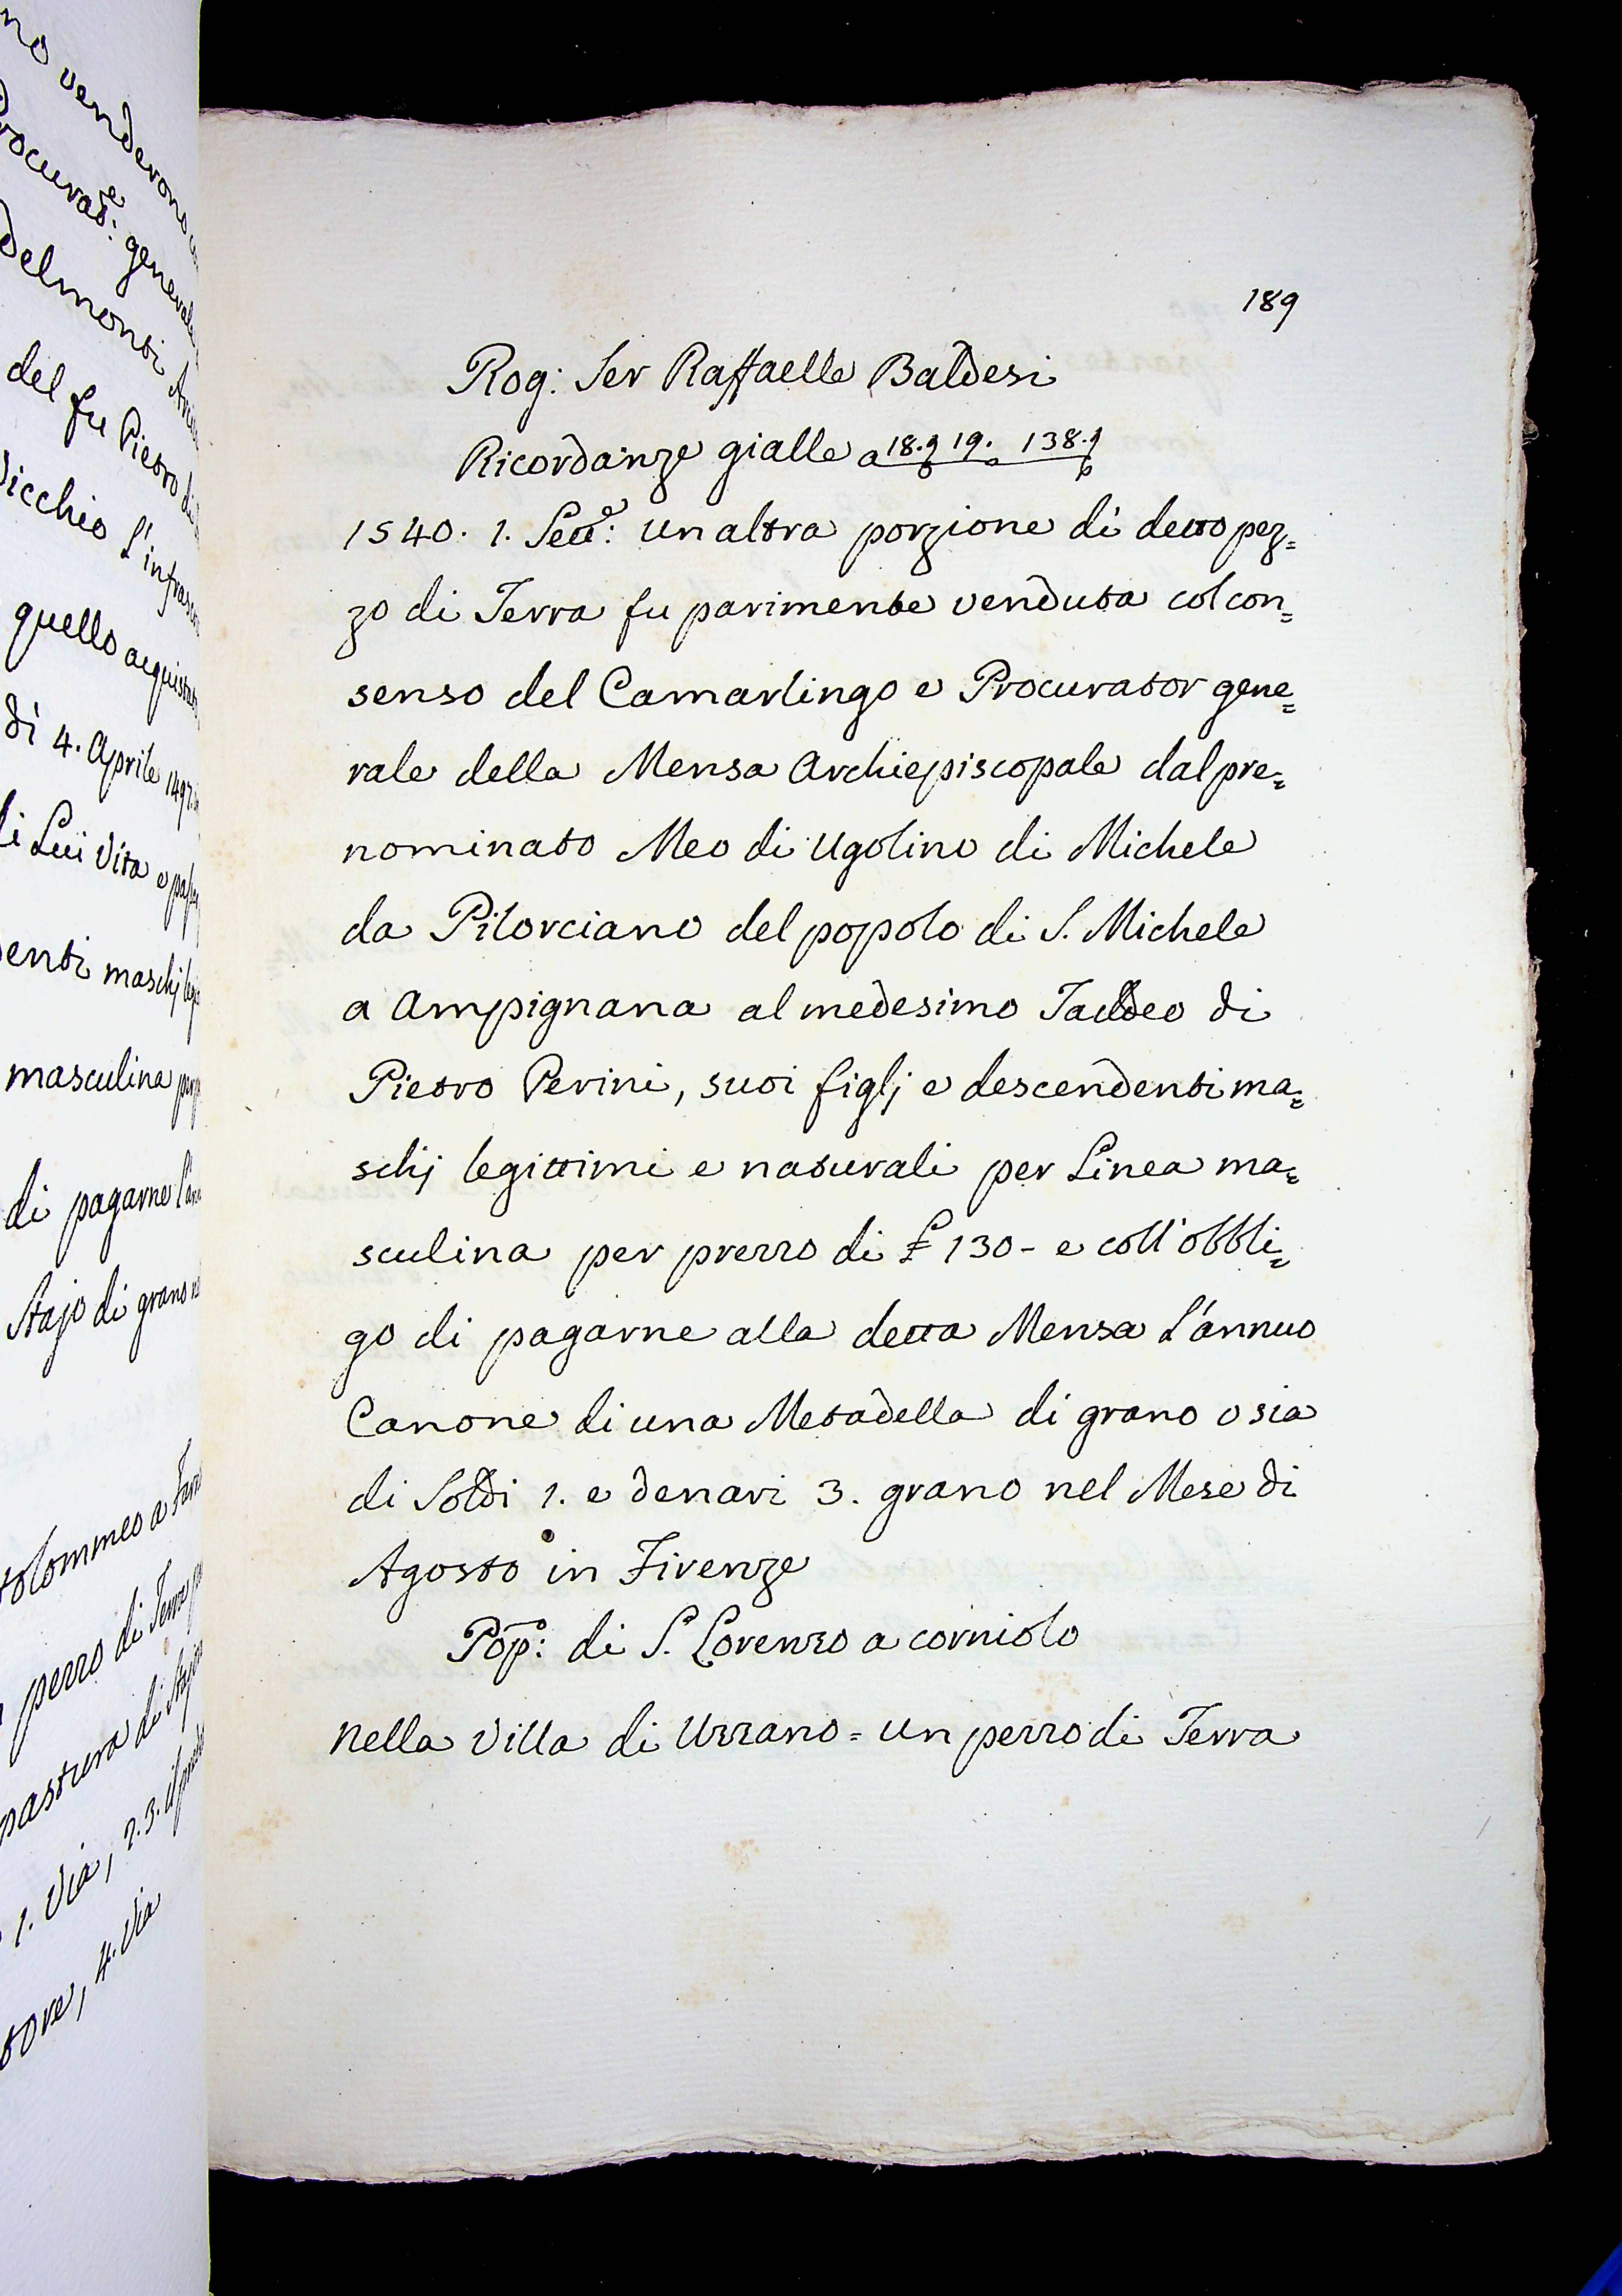 189
Rog: Ser Raffaello Baldesi
Ricordanze gialle a 18. 19. 138.
1540. 1. Sett.e: un altra porzione di detto pez=
zo di Terra fu parimente venduta col con=
senso del Camarlingo e Procurator gene=
rale della Mensa Archiepiscopale dal pre=
nominato Meo di Ugolino di Michele
da Pilorciano del popolo di S. Michele
a Ampignana al medesimo Taddeo di
Pietro Perini, suoi figlj e descendenti ma=
schj legittimi e naturali per Linea ma=
sculina per prezzo di £ 130 - e coll'obbli=
go di pagarne alla detta Mensa L'annuo
Canone di una Metadella di grano o sia
di Soldi 1. e denari 3. grano nel Mese di
Agosto in Firenze
Pop:o di S. Lorenzo a corniolo
Nella Villa di Uzzano = un pezzo di Terra
no venderono
Procurat.e: generale
delmonti
del fu Pietro di
Vicchio L'infra
quello acquistato
di 4. Aprile 1497
di Lui Vita e
denti maschj
masculina
di pagarne
Stajo di grano
tolommeo a
pezzo di Terra
pastura di Staj
1. Via, 2. 3. il
tore, 4. Via